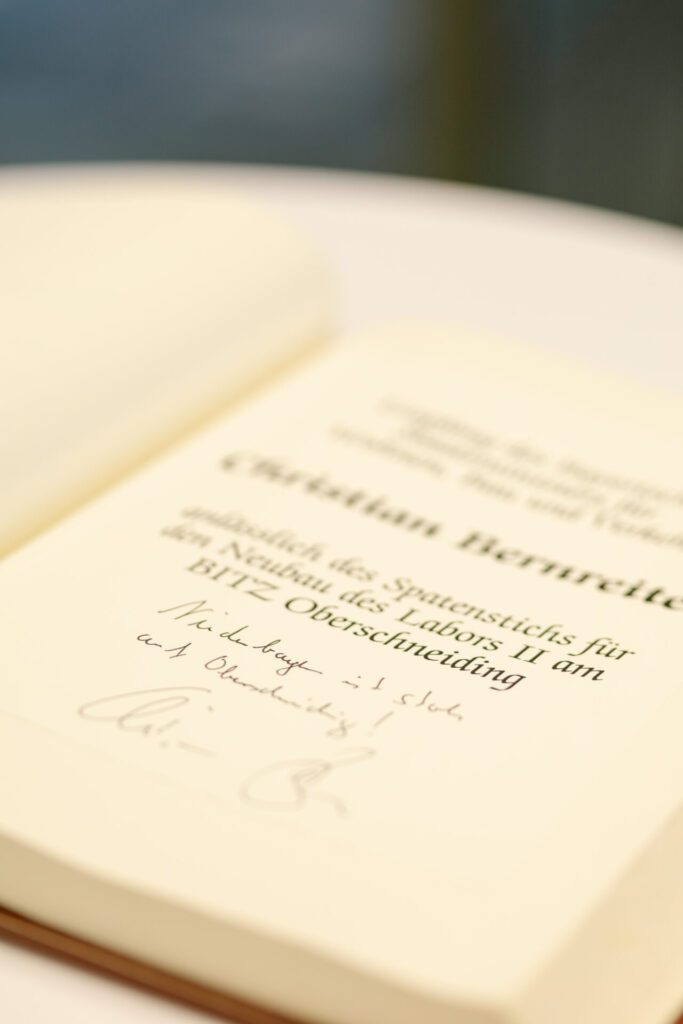 Empfang des Bayerischen
Staatsministers für
Wohnen, Bau und Verkehr
Christian Bernreite
anlässlich des Spatenstichs für
den Neubau des Labors II am
BITZ Oberschneiding
Niederbayern ist stolz
auf Oberschneiding!